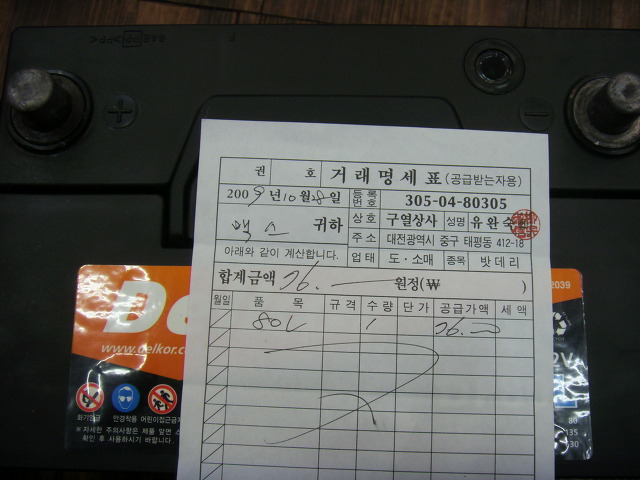 권 호 거래명세표(공급받는자용)
2009년 10월 28일 등록번호 305-04-80305
맥스 귀하 상호 구열상사 성명 유완숙
주소 대전광역시 중구 태평동 412-18
아래와 같이 계산합니다. 업태 도·소매 종목 밧데리
합계금액 76.— 원정(₩ )
월일 품목 규격 수량 단가 공급가액 세액
80L 1 76.—
De
www.delkor.c
화기엄금 안경착용 어린이접근금지
※자세한 주의사항은 제품 앞면 스
확인 후 사용하시기 바랍니다.
2039
2V
80
135
30